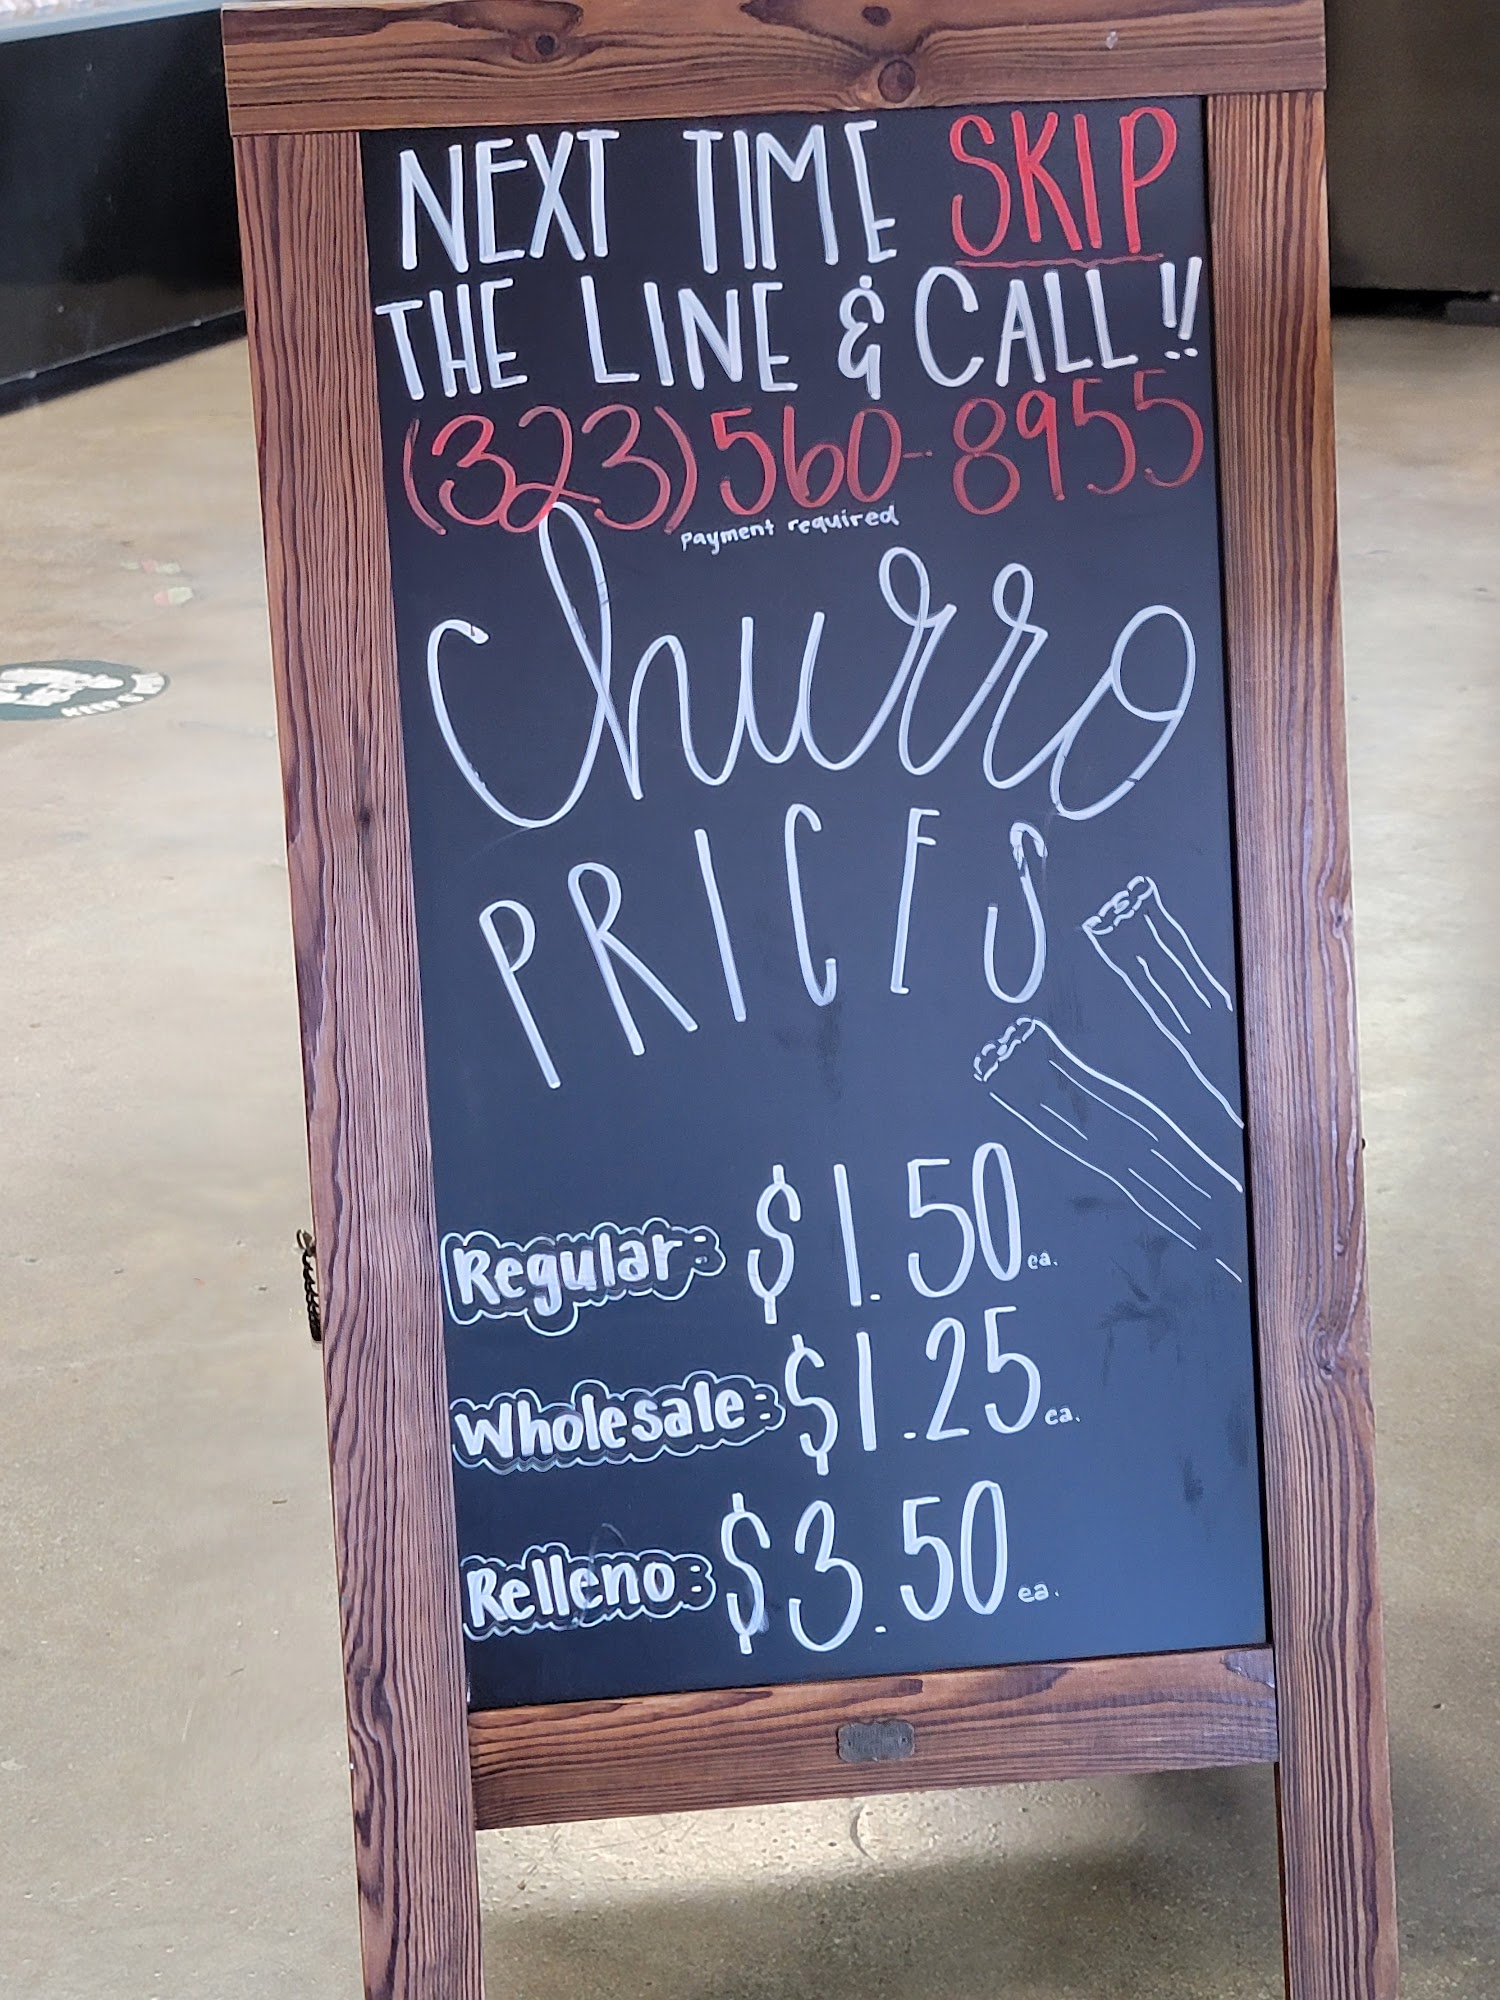 NEXT TIME SKIP
THE LINE & CALL!!
(323)560-8955
payment required
Churro
PRICES
Regular: $1.50 ea.
Wholesale: $1.25 ea.
Relleno: $3.50 ea.